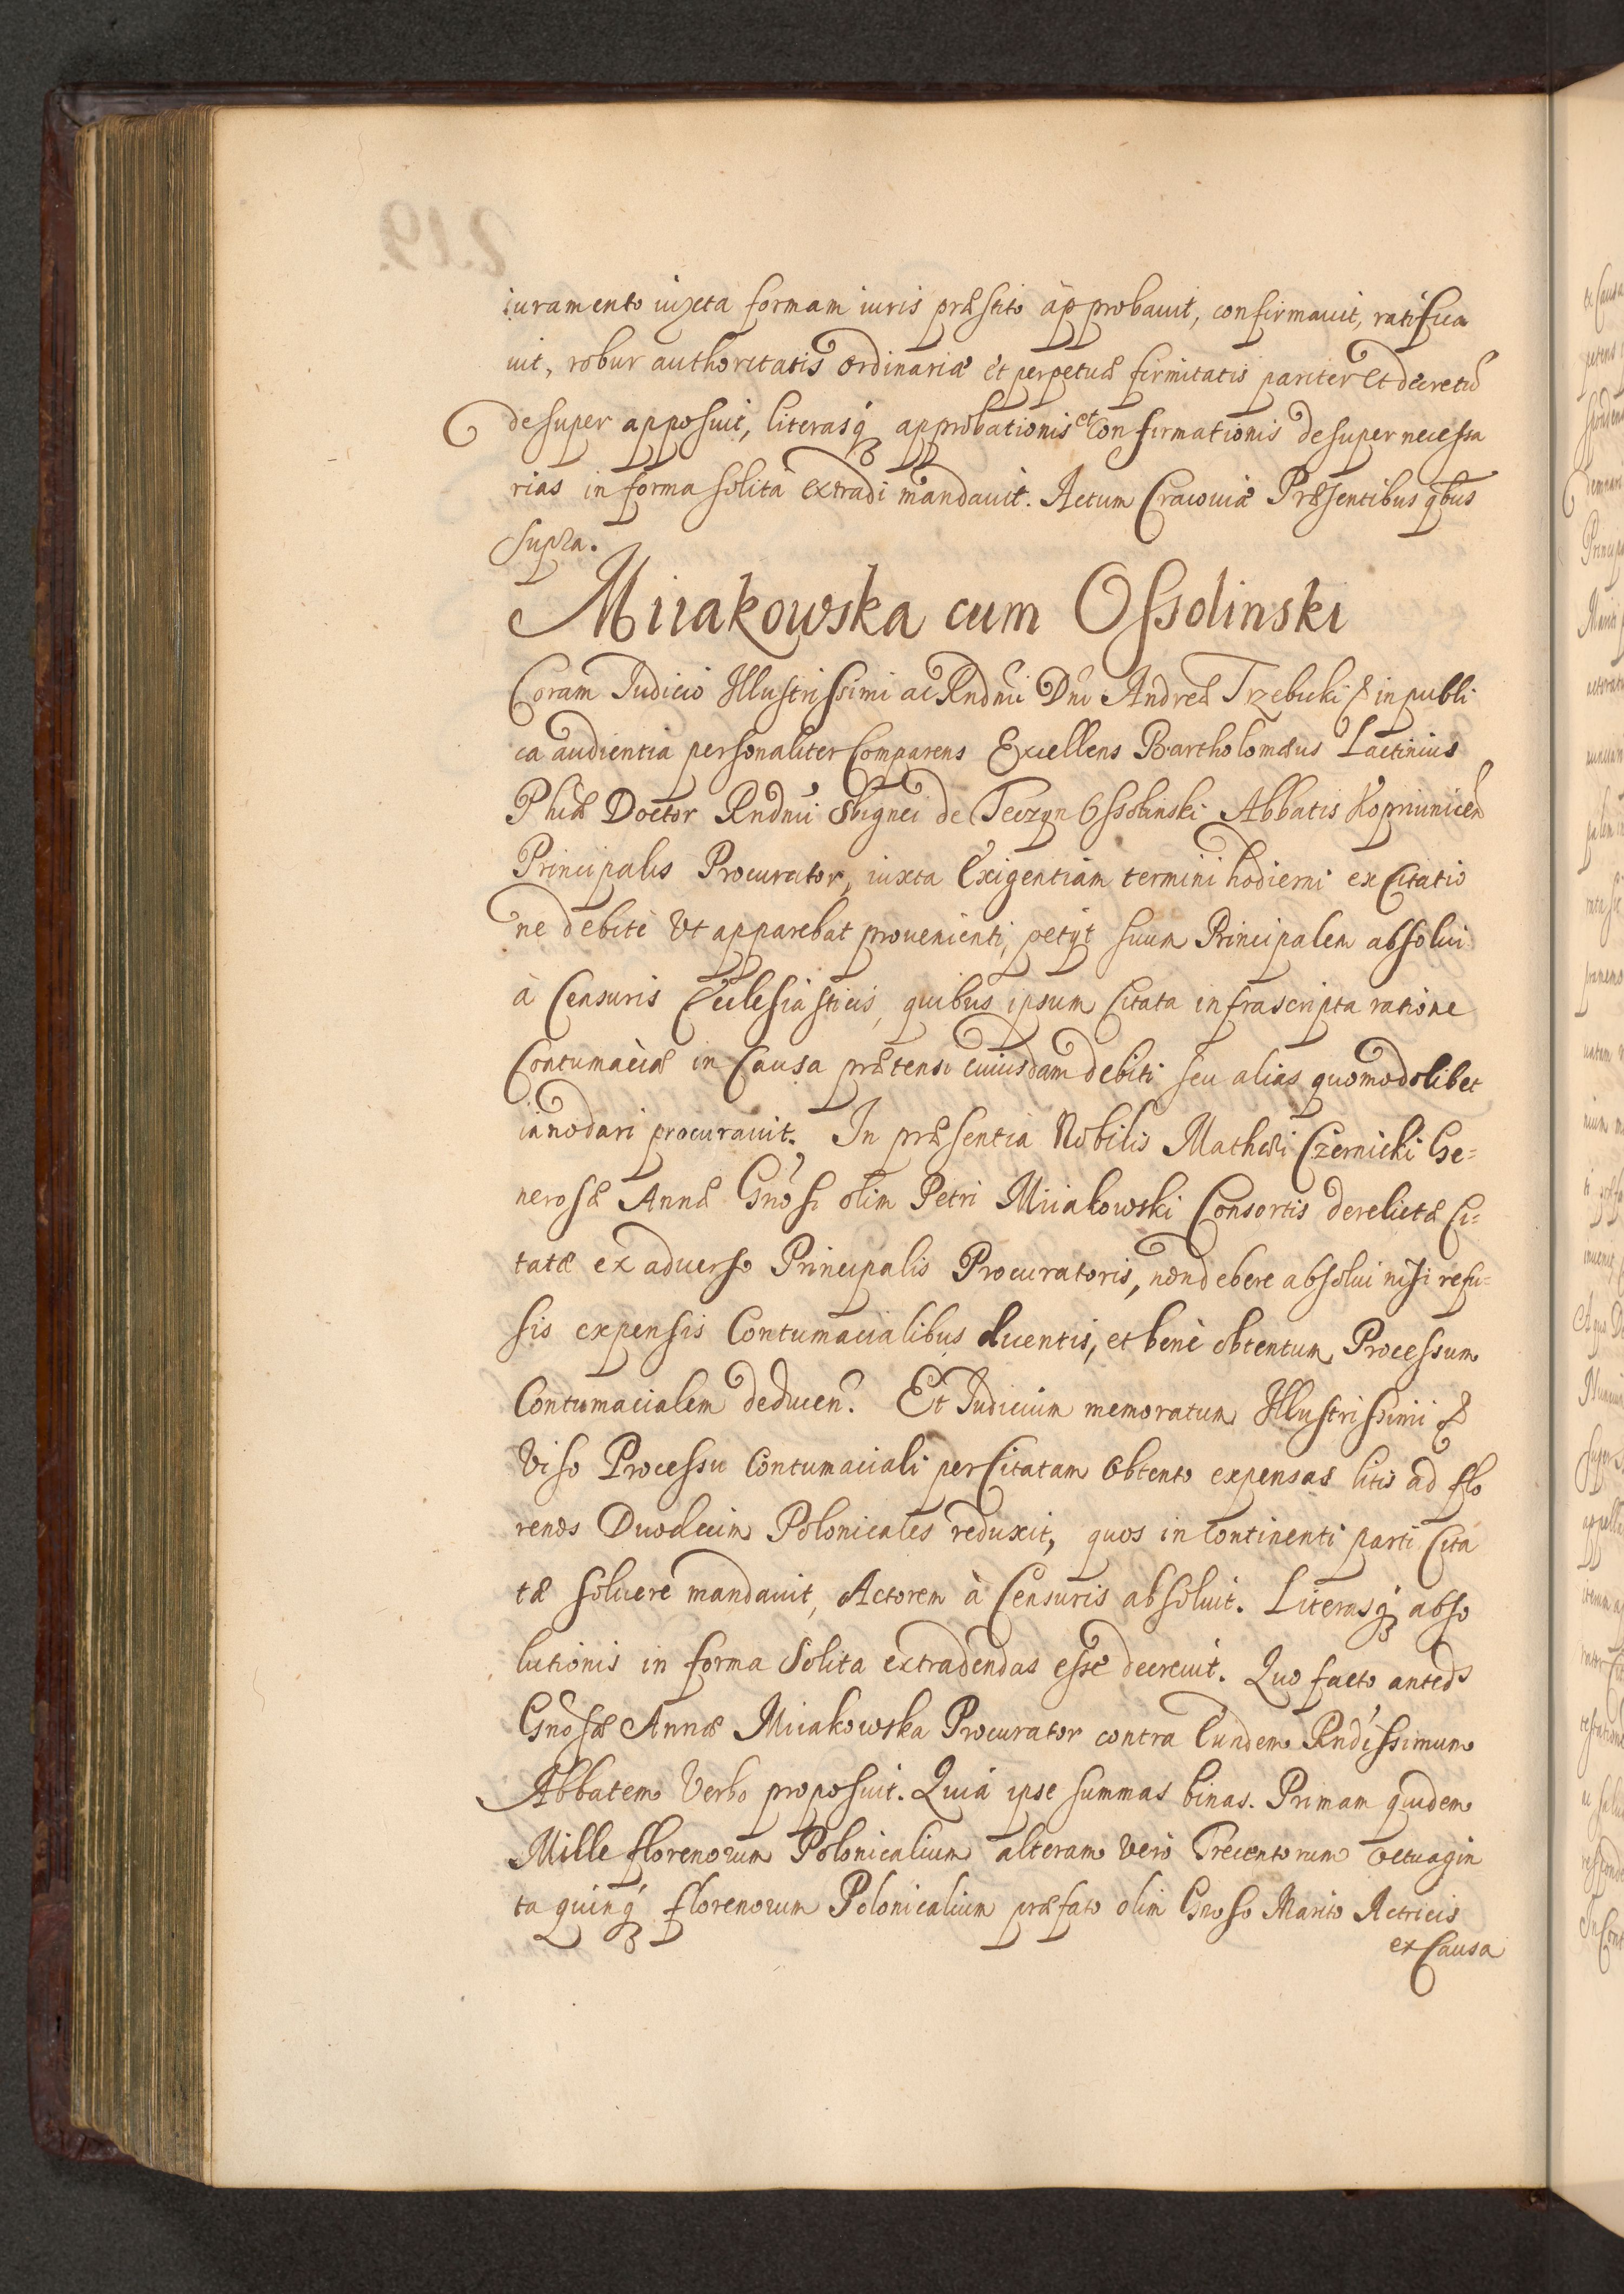 iuramento iuxta formam iuris præstito approbauit, confirmauit, ratifica
uit, robur authoritatis ordinariæ et perpetuæ firmitatis pariter et decretũ
desuper apposuit, literasq́ approbationis et Confirmationis desuper necessa
rias in forma solita extradi mandauit. Actum Cracouiæ Præsentibus qbus
supra.
Miiakowska cum Ossolinski
Coram Iudicio Illustrissimi ac Rndmi Dni Andreæ Trzebicki & in publi
ca audientia personaliter Comparens Excellens Bartholomæus Lactinius
Phiæ Doctor Rndmi Sbignei de Teczyn Ossolinski Abbatis Kopriunicen̄
Principalis Procurator, iuxta Exigentiam termini hodierni ex Citatio
ne debitè Vt apparebat prouenienti, petijt suum Principalem absolui
à Censuris Ecclesiasticis, quibus ipsum Citata infrascripta ratione
Contumaciæ in Causa prætensi cuiusdam debiti seu alias quomodolibet
innodari procurauit. In præsentia Nobilis Mathæi Czernicki Ge=
nerosæ Annæ Gnosi olim Petri Miiakowski Consortis derelictæ Ci=
tatæ ex aduerso Principalis Procuratoris, non debere absolui nisi refu=
sis expensis Contumacialibus ducentis, et benè obtentum Processum
Contumacialem deducen̄. Et Iudicium memoratum Illustrissimi &
Viso Processu Contumaciali per Citatam obtento expensas litis ad flo
renos Duodecim Polonicales reduxit, quos in continenti parti Cita
tæ soluere mandauit, Actorem à Censuris absoluit. Literasq́ abso
lutionis in forma Solita extradendas esse decreuit. Quo facto anteds
Gnosæ Annæ Miiakowska Procurator contra Eundem Rndissimum
Abbatem Verbo proposuit. Quia ipse summas binas. Primam quidem
Mille florenorum Polonicalium alteram verò Trecentorum octuagin
ta quinq́ florenorum Polonicalium præfato olim Gnoso Marito Actricis
ex Causa